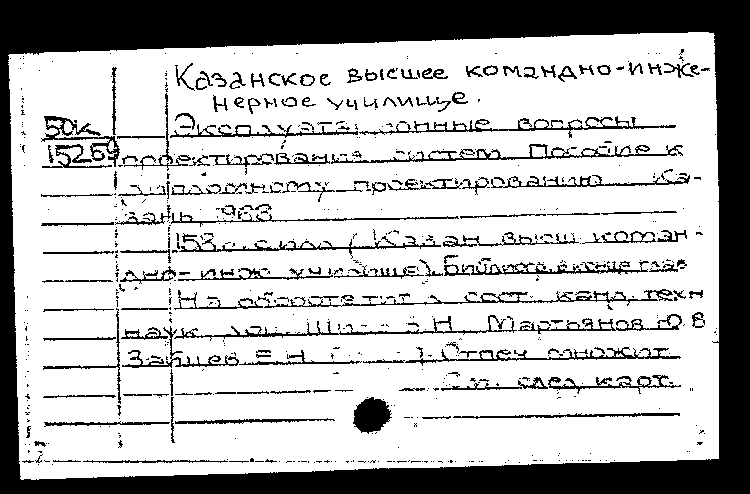 Казанское высшее командно-инже-
нерное училище.
50к
Эксплуатационные вопросы
15259 проектирования систем Пособие к
дипломному проектированию Ка-
зань, 1968
158 с. с илл (Казан высш коман-
дно-инж училище). Библиогр. в конце глав
На обороте тит л сост. канд. техн
наук, доц. Н. Мартьянов Ю В
Зайцев Е.Н. Отпеч множит.
См. след. карт.